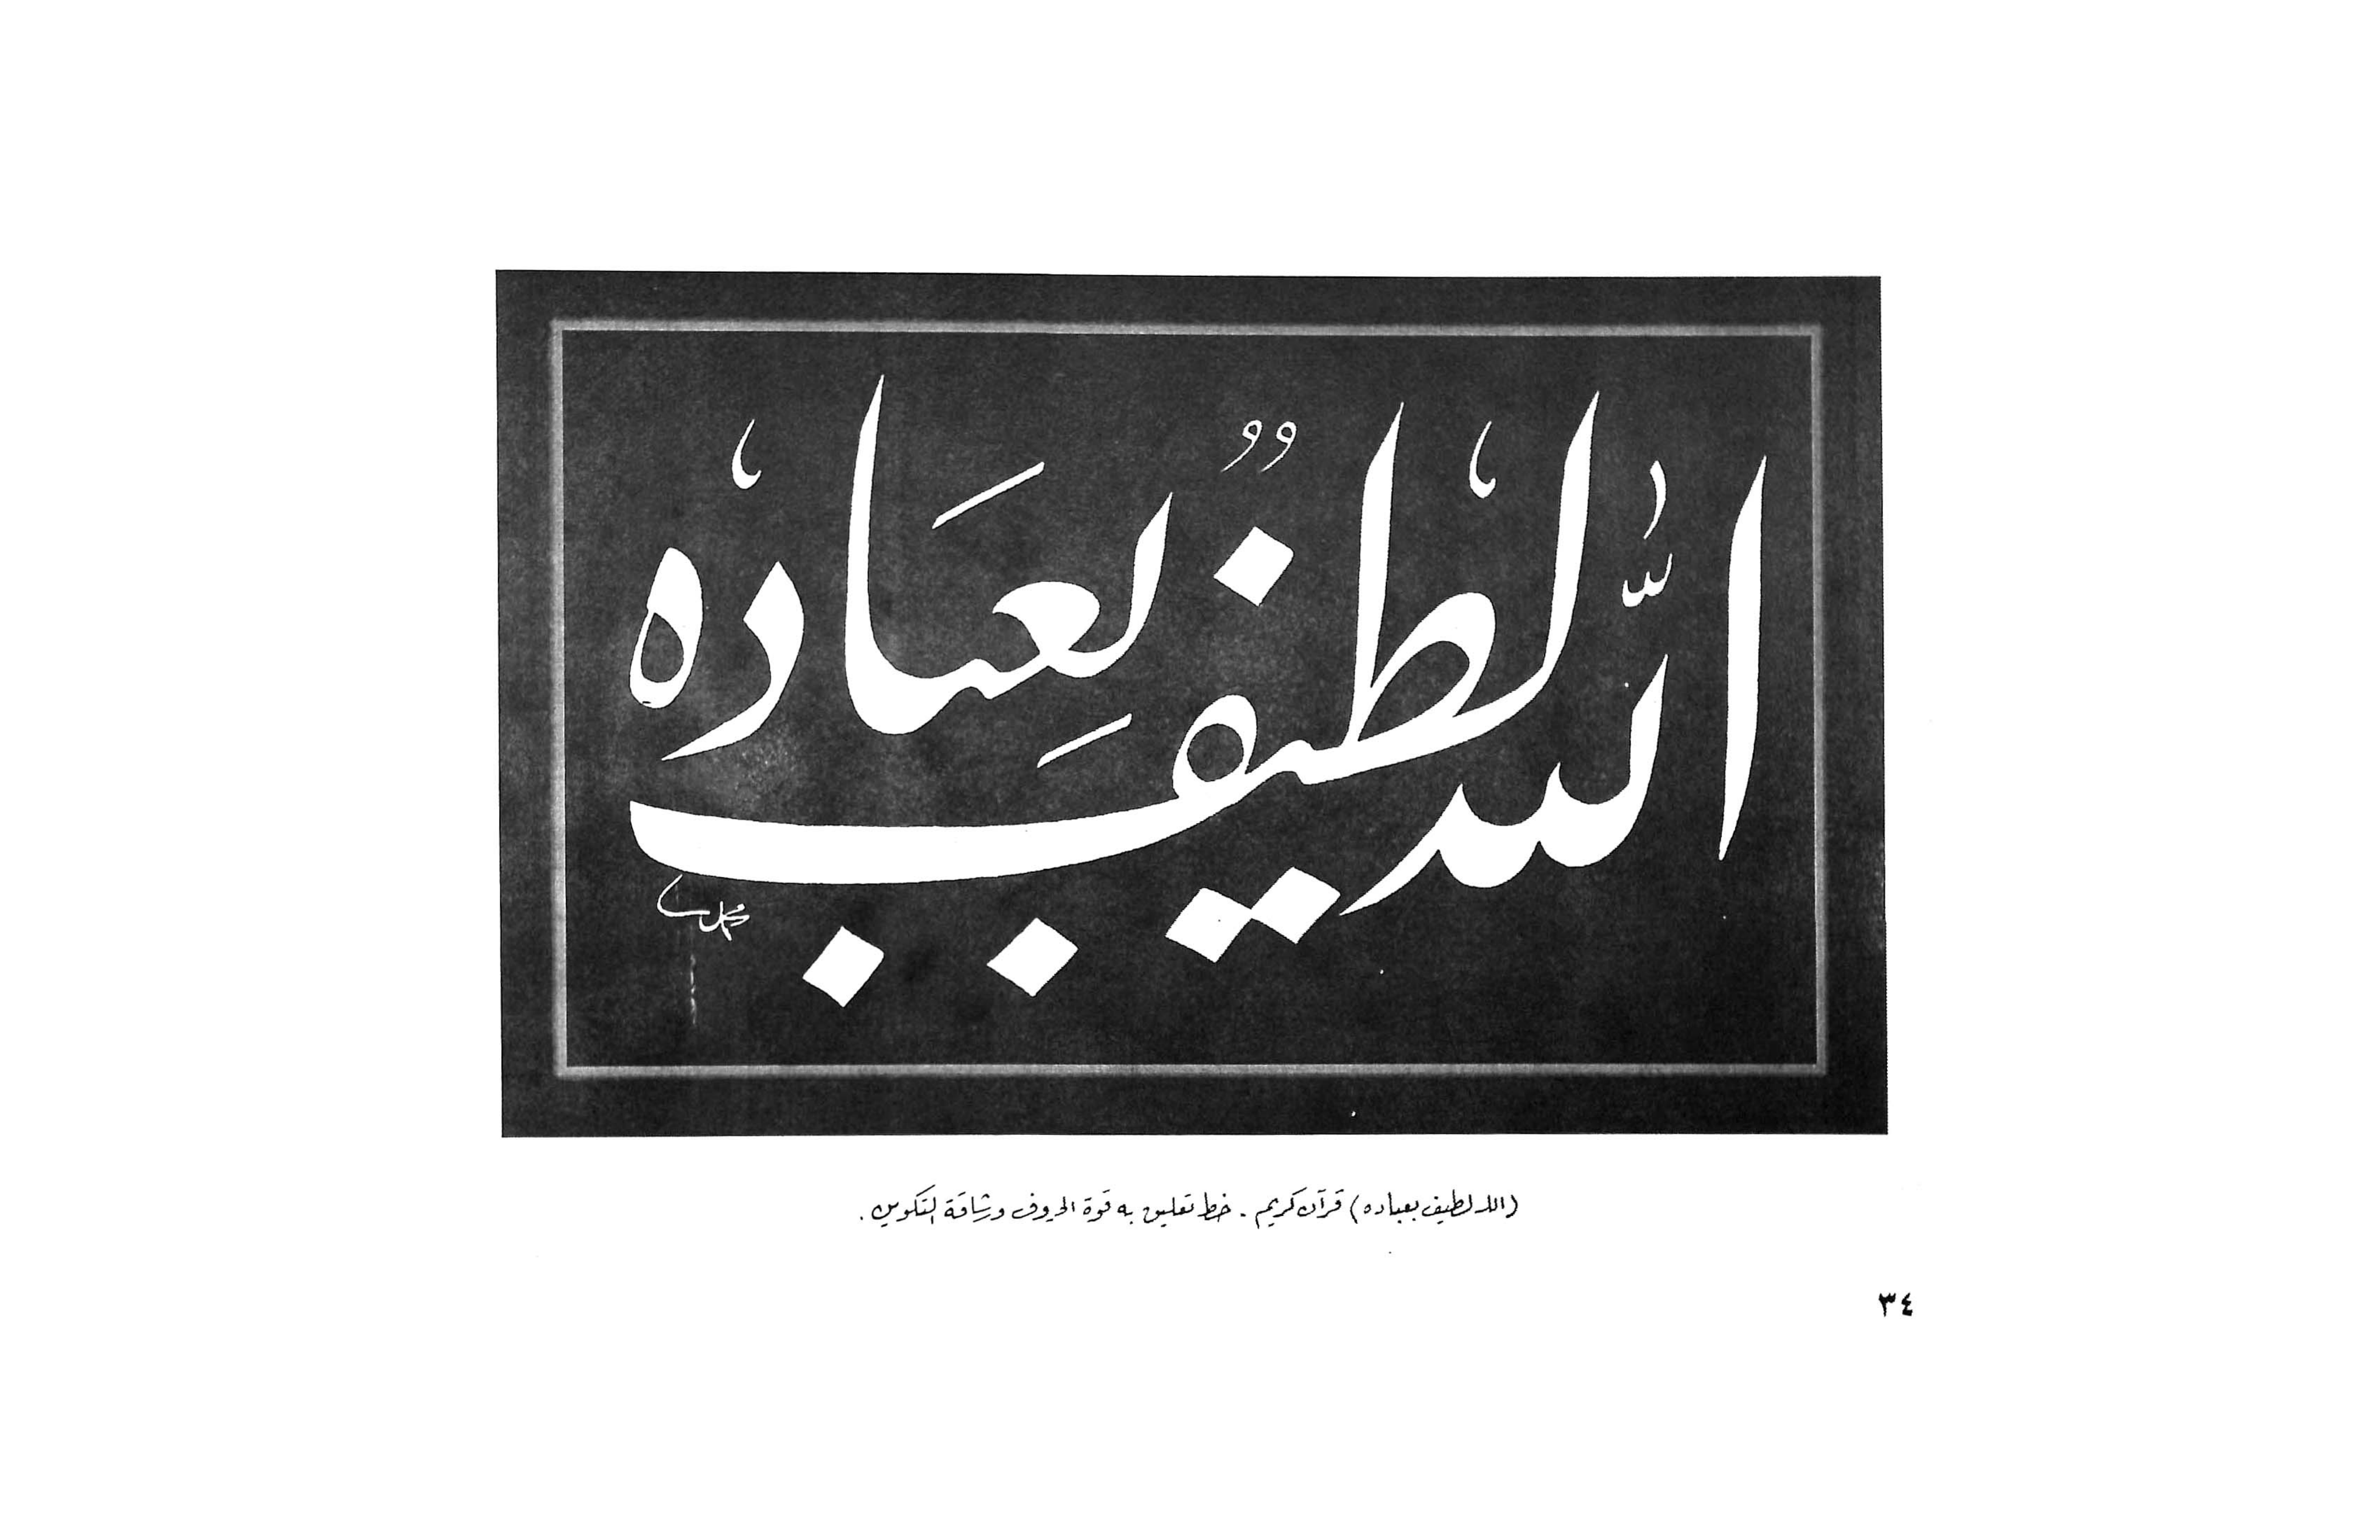 الله لطيف بعباده
محمد
(الله لطيف بعباده) قرآن كريم . خط تعليق به قوة الحروف ورشاقة التكوين .
٣٤